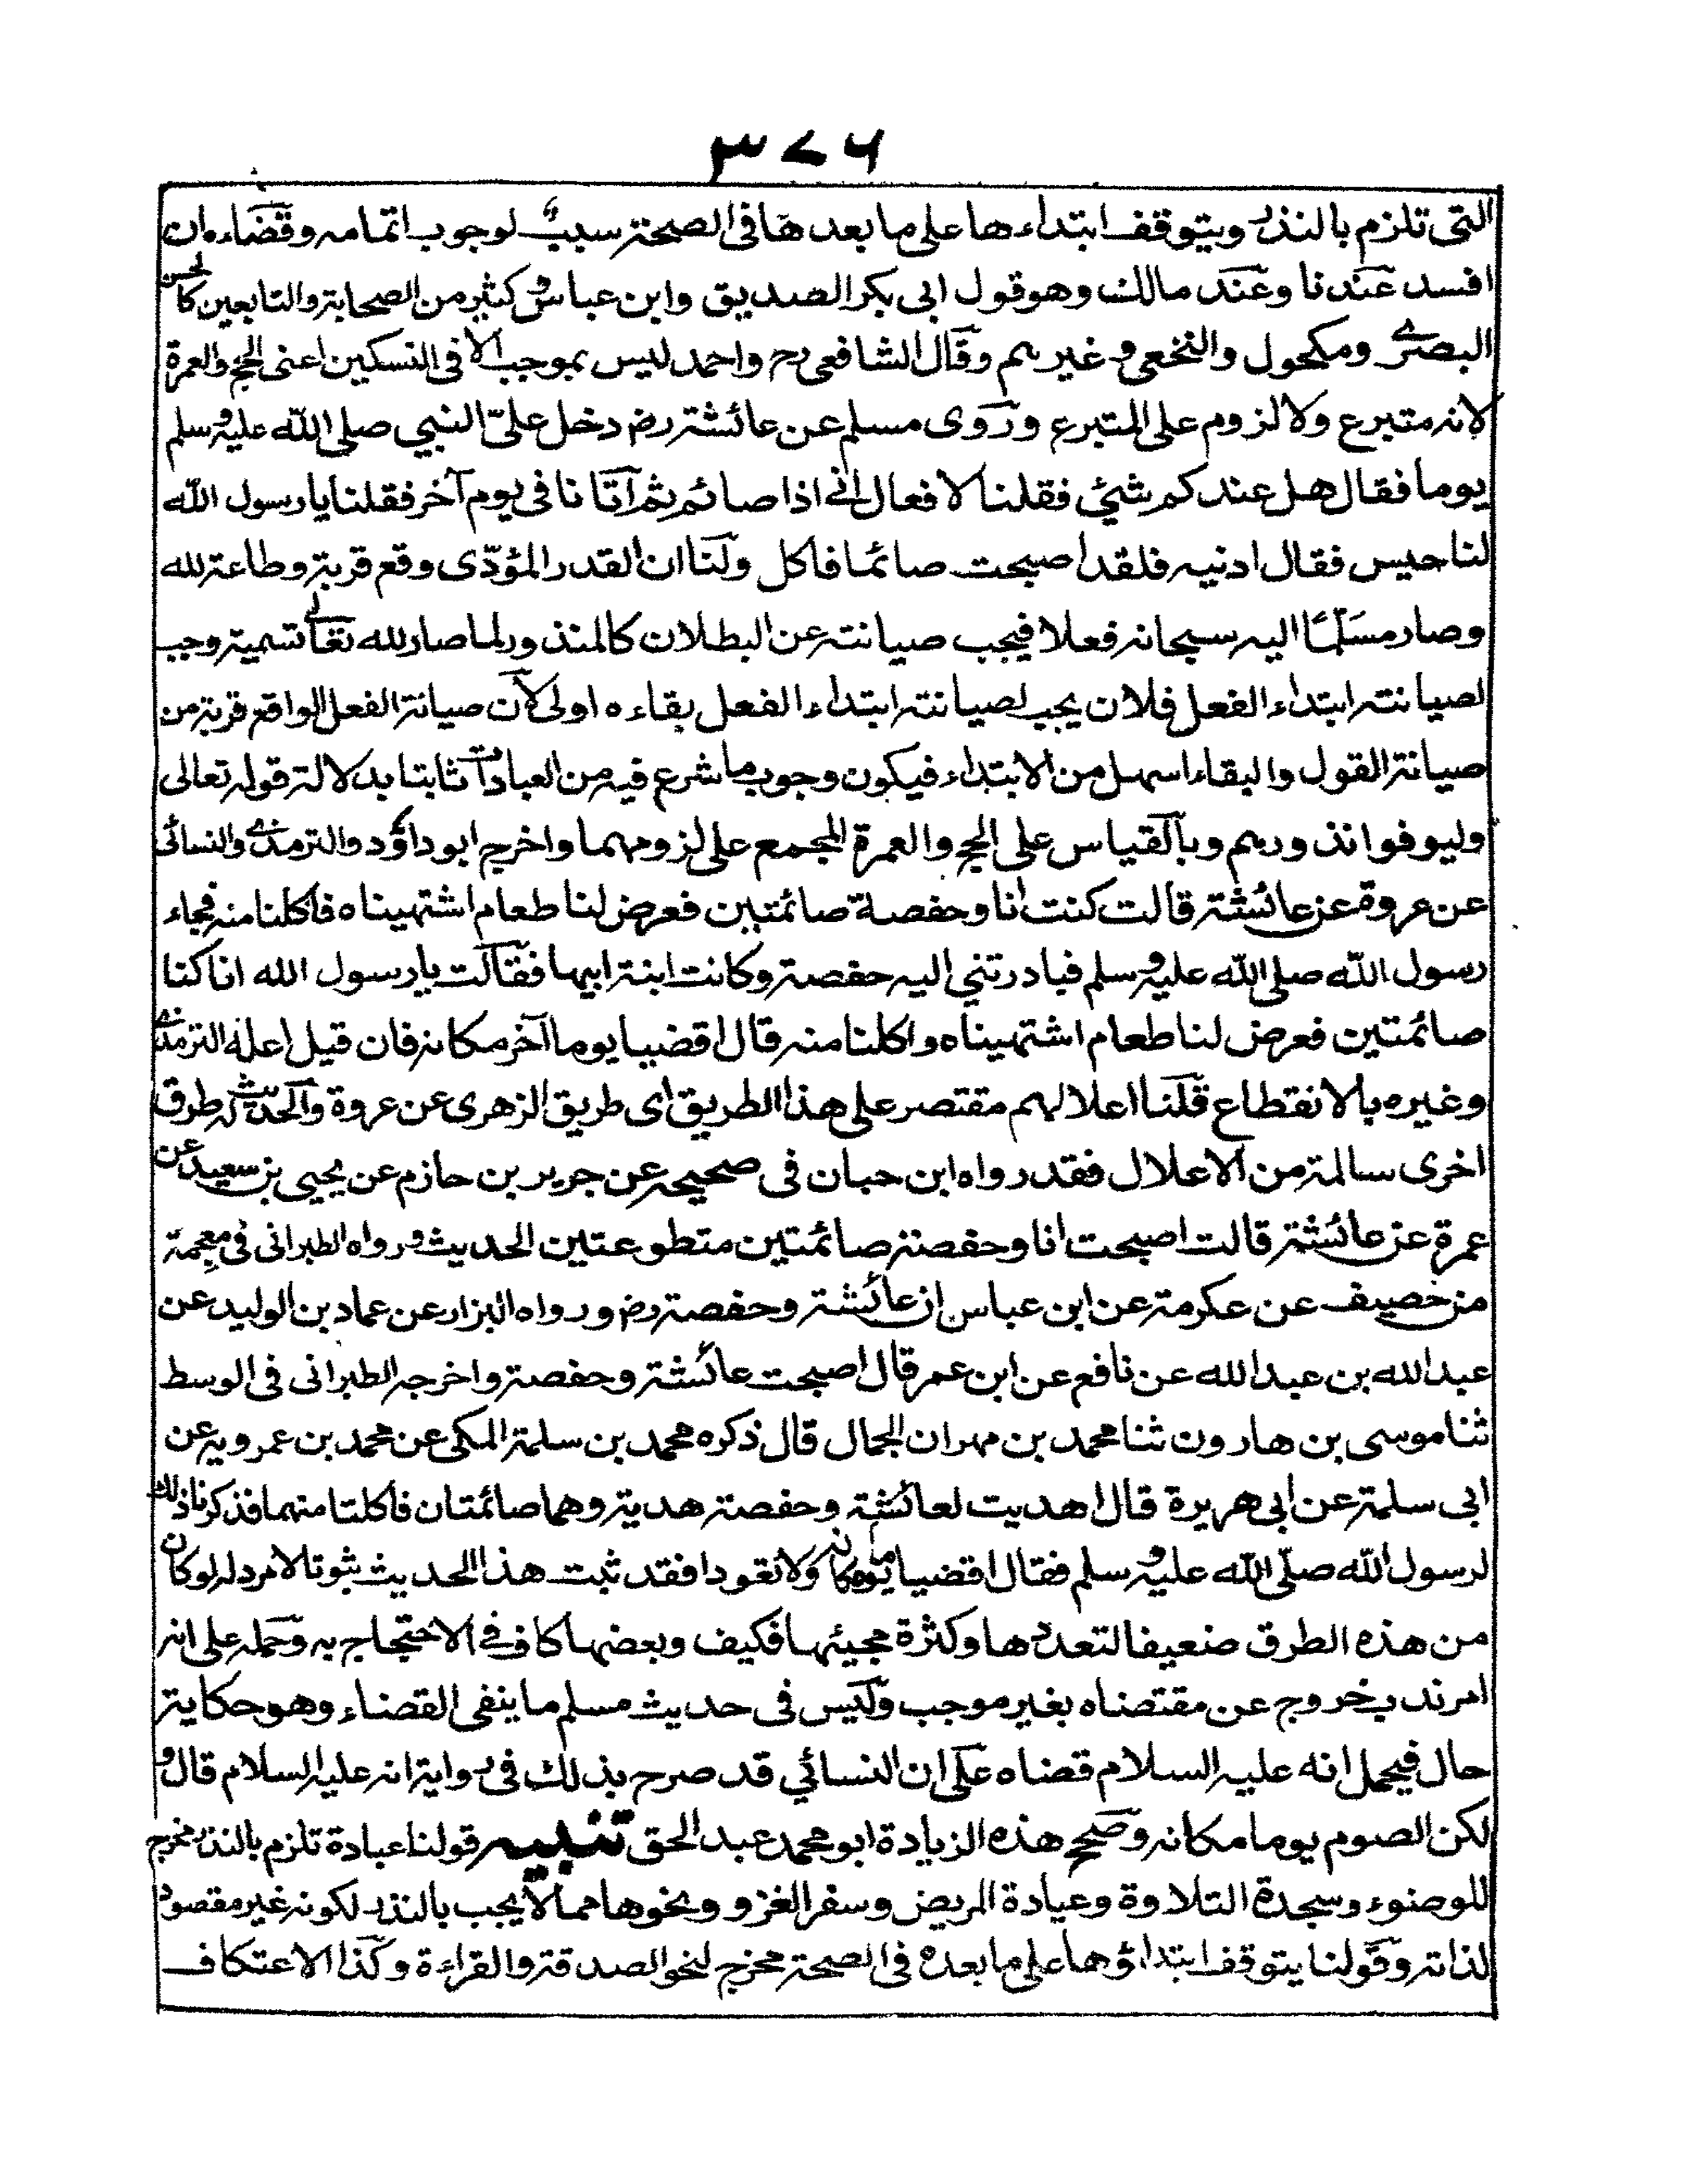 ٣٧٦
التى تلزم بالنذر ويتوقف ابتداءها على ما بعدها فى الصحة سبب لوجوب اتمامه وقضاءه ان
افسد عندنا وعند مالك وهو قول ابى بكر الصديق وابن عباس وكثير من الصحابة والتابعين كالحسن
البصرى ومكحول والنخعى وغيرهم وقال الشافعى رح واحمد ليس بموجب الا فى النسكين اعنى الحج والعمرة
لانه متبرع ولا لزوم على المتبرع وروى مسلم عن عائشة رض دخل علىّ النبي صلى الله عليه وسلم
يوما فقال هل عندكم شئ فقلنا لا فعال انى اذا صائم ثم آتانا فى يوم آخر فقلنا يا رسول الله
لنا حيس فقال ادنيه فلقد اصبحت صائما فاكل ولنا ان القدر المؤدّى وقع قربة وطاعة لله
وصار مسلّما اليه سبحانه فعلا فيجب صيانته عن البطلان كالمنذور لما صار لله تعالى تسمية وجب
لصيانته ابتداء الفعل فلان يجب لصيانته ابتداء الفعل بقاءه اولى لان صيانة الفعل الواقع قربة من
صيانة القول والبقاء اسهل من الابتداء فيكون وجوب ما شرع فيه من العبادات ثابتا بدلالة قوله تعالى
وليوفوا نذورهم وبالقياس على الحج والعمرة المجمع على لزومهما واخرج ابو داؤد والترمذى والنسائى
عن عروة عن عائشة قالت كنت انا وحفصة صائمتين فعرض لنا طعام اشتهيناه فاكلنا منه فجاء
رسول الله صلى الله عليه وسلم فبادرتني اليه حفصة وكانت ابنة ابيها فقالت يا رسول الله انا كنا
صائمتين فعرض لنا طعام اشتهيناه واكلنا منه قال اقضيا يوما آخر مكانه فان قيل اعله الترمذى
وغيره بالانقطاع قلنا اعلالهم مقتصر على هذا الطريق اى طريق الزهرى عن عروة والحديث له طرق
اخرى سالمة من الاعلال فقد رواه ابن حبان فى صحيحه عن جرير بن حازم عن يحيى بن سعيد عن
عمرة عن عائشة قالت اصبحت انا وحفصة صائمتين متطوعتين الحديث ورواه الطبرانى فى معجمة
من خصيف عن عكرمة عن ابن عباس ان عائشة وحفصة رض ورواه البزار عن عماد بن الوليد عن
عبد الله بن عبد الله عن نافع عن ابن عمر قال اصبحت عائشة وحفصة واخرجه الطبرانى فى الوسط
ثنا موسى بن هارون ثنا محمد بن مهران الجمال قال ذكره محمد بن سلمة المكى عن محمد بن عمرويه عن
ابى سلمة عن ابى هريرة قال اهديت لعائشة وحفصة هدية وهما صائمتان فاكلتا منهما فذكرنا ذلك
لرسول الله صلّى الله عليه وسلم فقال اقضيا يوما مكانه ولا تعودا فقد ثبت هذا الحديث ثبوتا لا مرد له لو كان
من هذه الطرق ضعيفا لتعددها وكثرة مجيئها فكيف وبعضها كاف فى الاحتجاج به وحمله على انه
امر ندب خروج عن مقتضاه بغير موجب وليس فى حديث مسلم ما ينفى القضاء وهو حكاية
حال فيحمل انه عليه السلام قضاه على ان النسائي قد صرح بذلك فى رواية انه عليه السلام قال و
لكن الصوم يوما مكانه وصحح هذه الزيادة ابو محمد عبد الحق تنبيه قولنا عبادة تلزم بالنذر مخرج
للوضوء وسجدة التلاوة وعيادة المريض وسفر الغزو ونحوها مما لا يجب بالنذر لكونه غير مقصود
لذاته وقولنا يتوقف ابتداؤها على ما بعده فى الصحة مخرج لنحو الصدقة والقراءة وكذا الاعتكاف